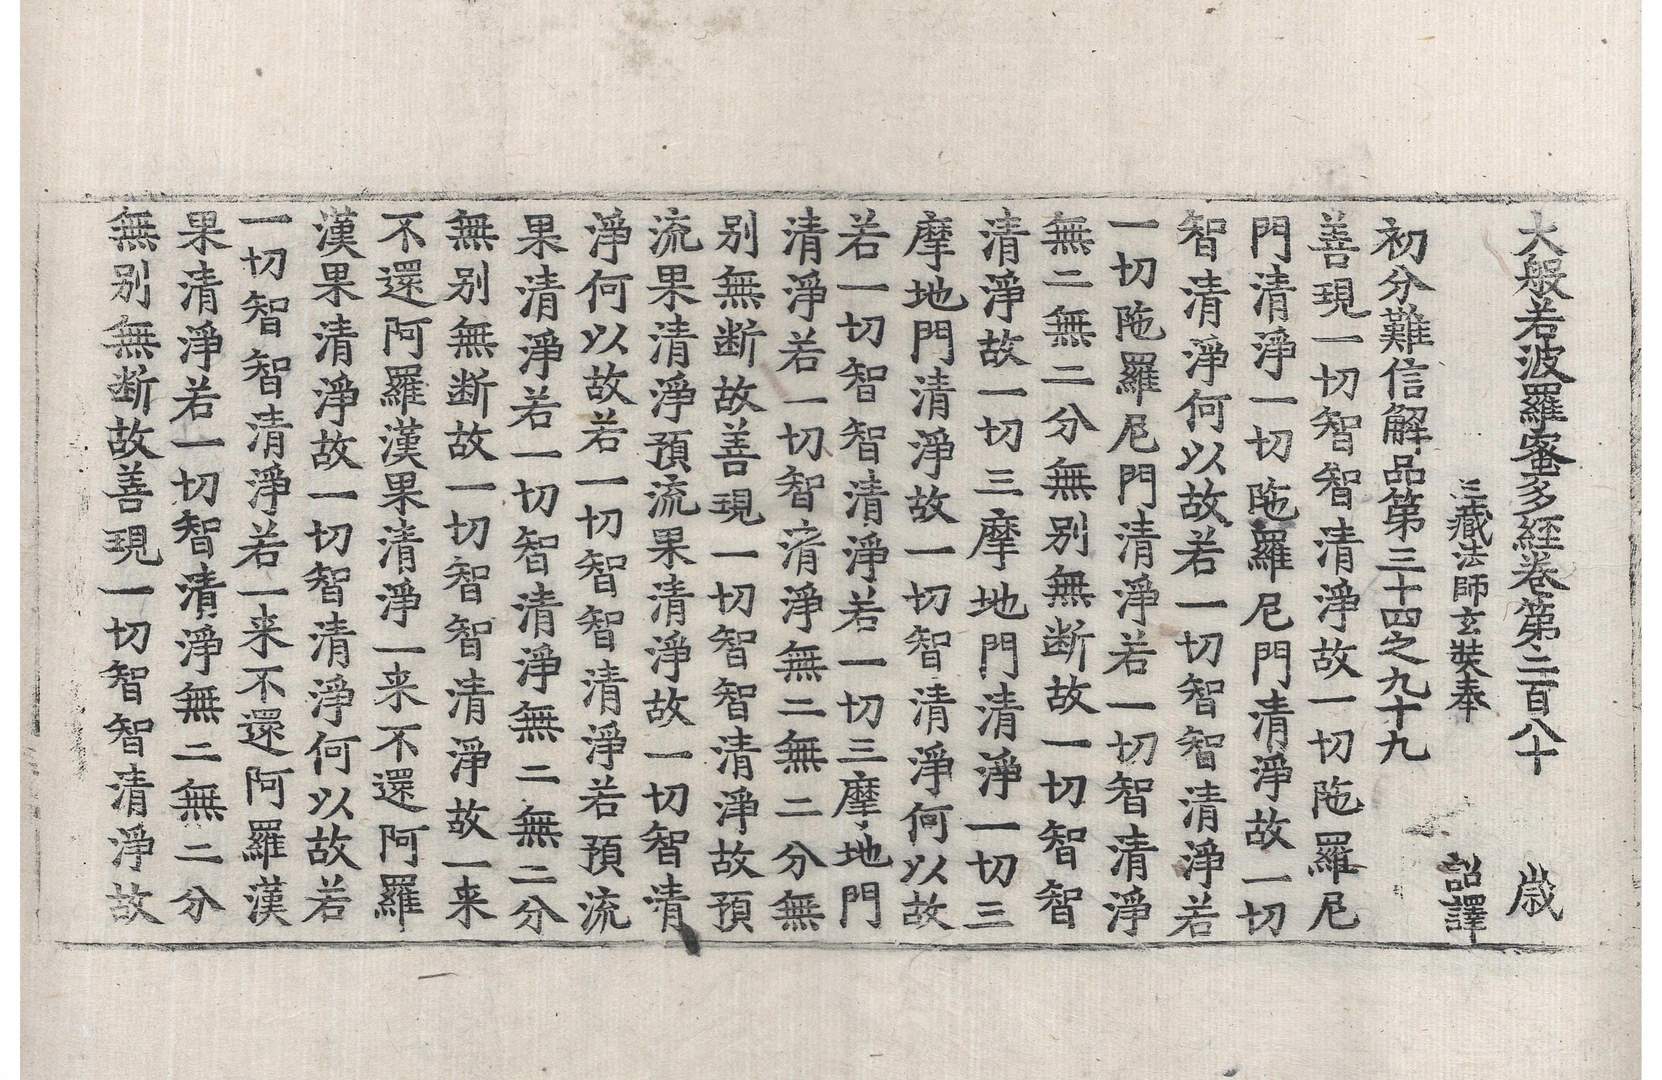 大般若波羅蜜多經卷第二百八十 歲
三藏法師玄奘奉 詔譯
初分難信解品第三十四之九十九
善現一切智智清淨故一切陁羅尼
門清淨一切陁羅尼門清淨故一切
智清淨何以故若一切智智清淨若
一切陁羅尼門清淨若一切智清淨
無二無二分無別無断故一切智智
清淨故一切三摩地門清淨一切三
摩地門清淨故一切智清淨何以故
若一切智智清淨若一切三摩地門
清淨若一切智清淨無二無二分無
別無断故善現一切智智清淨故預
流果清淨預流果清淨故一切智清
淨何以故若一切智智清淨若預流
果清淨若一切智清淨無二無二分
無別無断故一切智智清淨故一来
不還阿羅漢果清淨一来不還阿羅
漢果清淨故一切智清淨何以故若
一切智智清淨若一来不還阿羅漢
果清淨若一切智清淨無二無二分
無別無断故善現一切智智清淨故